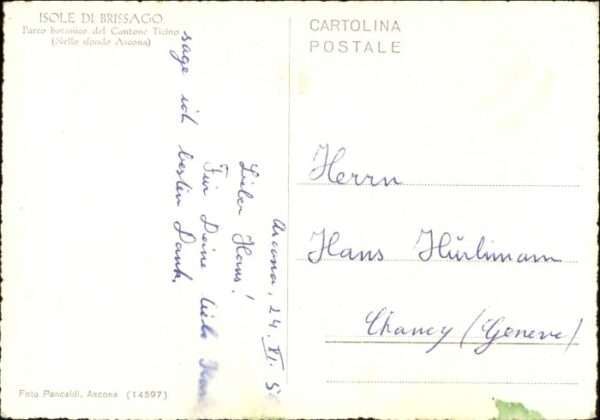 ISOLE DI BRISSAGO
Parco botanico del Cantone Ticino
(Nello sfondo Ascona)
CARTOLINA
POSTALE
Ascona, 24. VI. 5
Lieber Hans!
Für Deine liebe
sage ich besten Dank.
Herrn
Hans Hürlimann
Chancy (Geneve)
Foto Pancaldi, Ascona (14597)